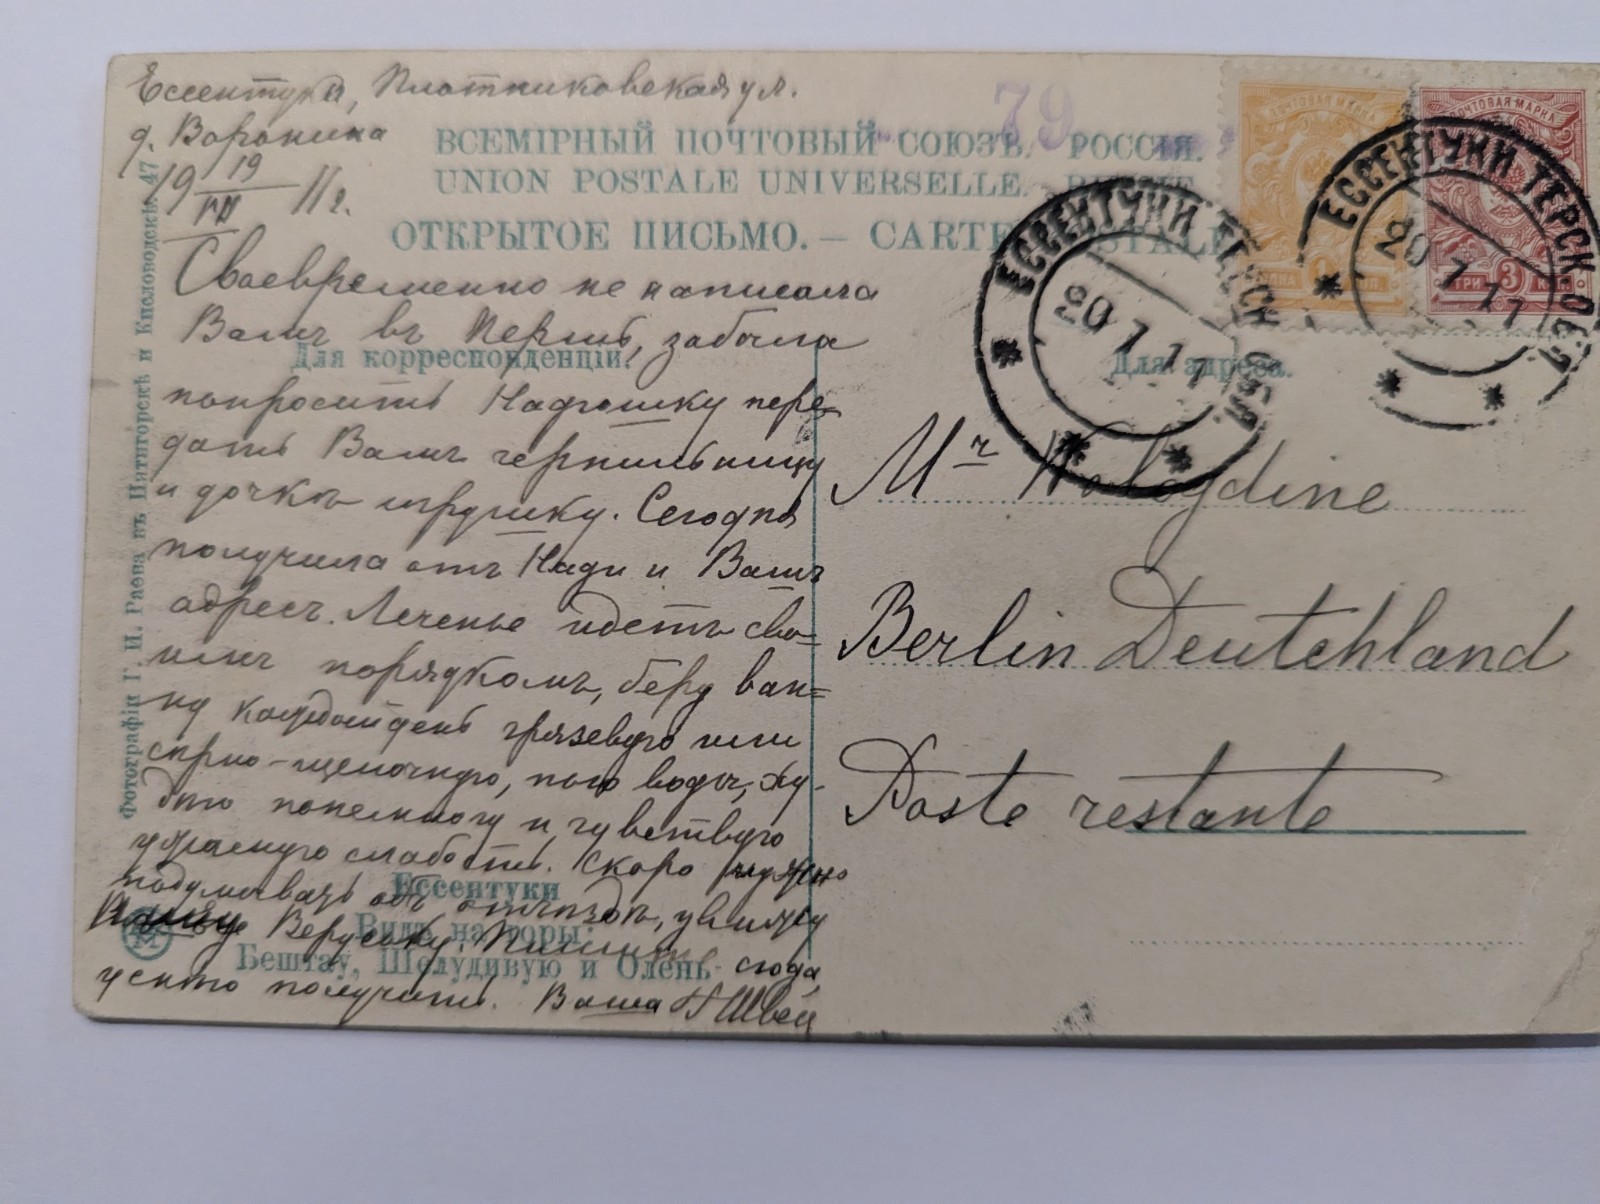 Ессентуки, Плотниковская ул.
д. Воронина
19 19/VII 11 г.
79
ВСЕМІРНЫЙ ПОЧТОВЫЙ СОЮЗЪ. РОССІЯ.
UNION POSTALE UNIVERSELLE. RUSSIE
ОТКРЫТОЕ ПИСЬМО. — CARTE POSTALE
Для корреспонденціи.
Для адреса.
Своевременно не написала
Вамъ въ Пермь, забыла
попросить Надюшку пере-
дать Вамъ чернильницу
и дочкѣ игрушку. Сегодня
получила отъ Нади и Вашъ
адресъ. Леченье идетъ сво-
имъ порядкомъ, беру ван=
ну каждый день грязевую или
сѣрно-щелочную, пью воды, ху-
дѣю понемногу и чувствую
ужасную слабость. Скоро нужно
подумывать объ отъѣздѣ, увижу
Веруську. Пишите сюда,
успѣю получить. Ваша Швей
Ессентуки
Видъ на горы:
Бештау, Шелудивую и Олень
Фотографіи Г. И. Раева въ Пятигорскѣ и Кисловодскѣ. 47
ПОЧТОВАЯ МАРКА
ПОЧТОВАЯ МАРКА
ТРИ 3 КОП.
ЕССЕНТУКИ ТЕРСК. ОБЛ.
20 7 11
ЕССЕНТУКИ ТЕРСК. ОБЛ.
20 7 11
Mr
Berlin Deutchland
Poste restante